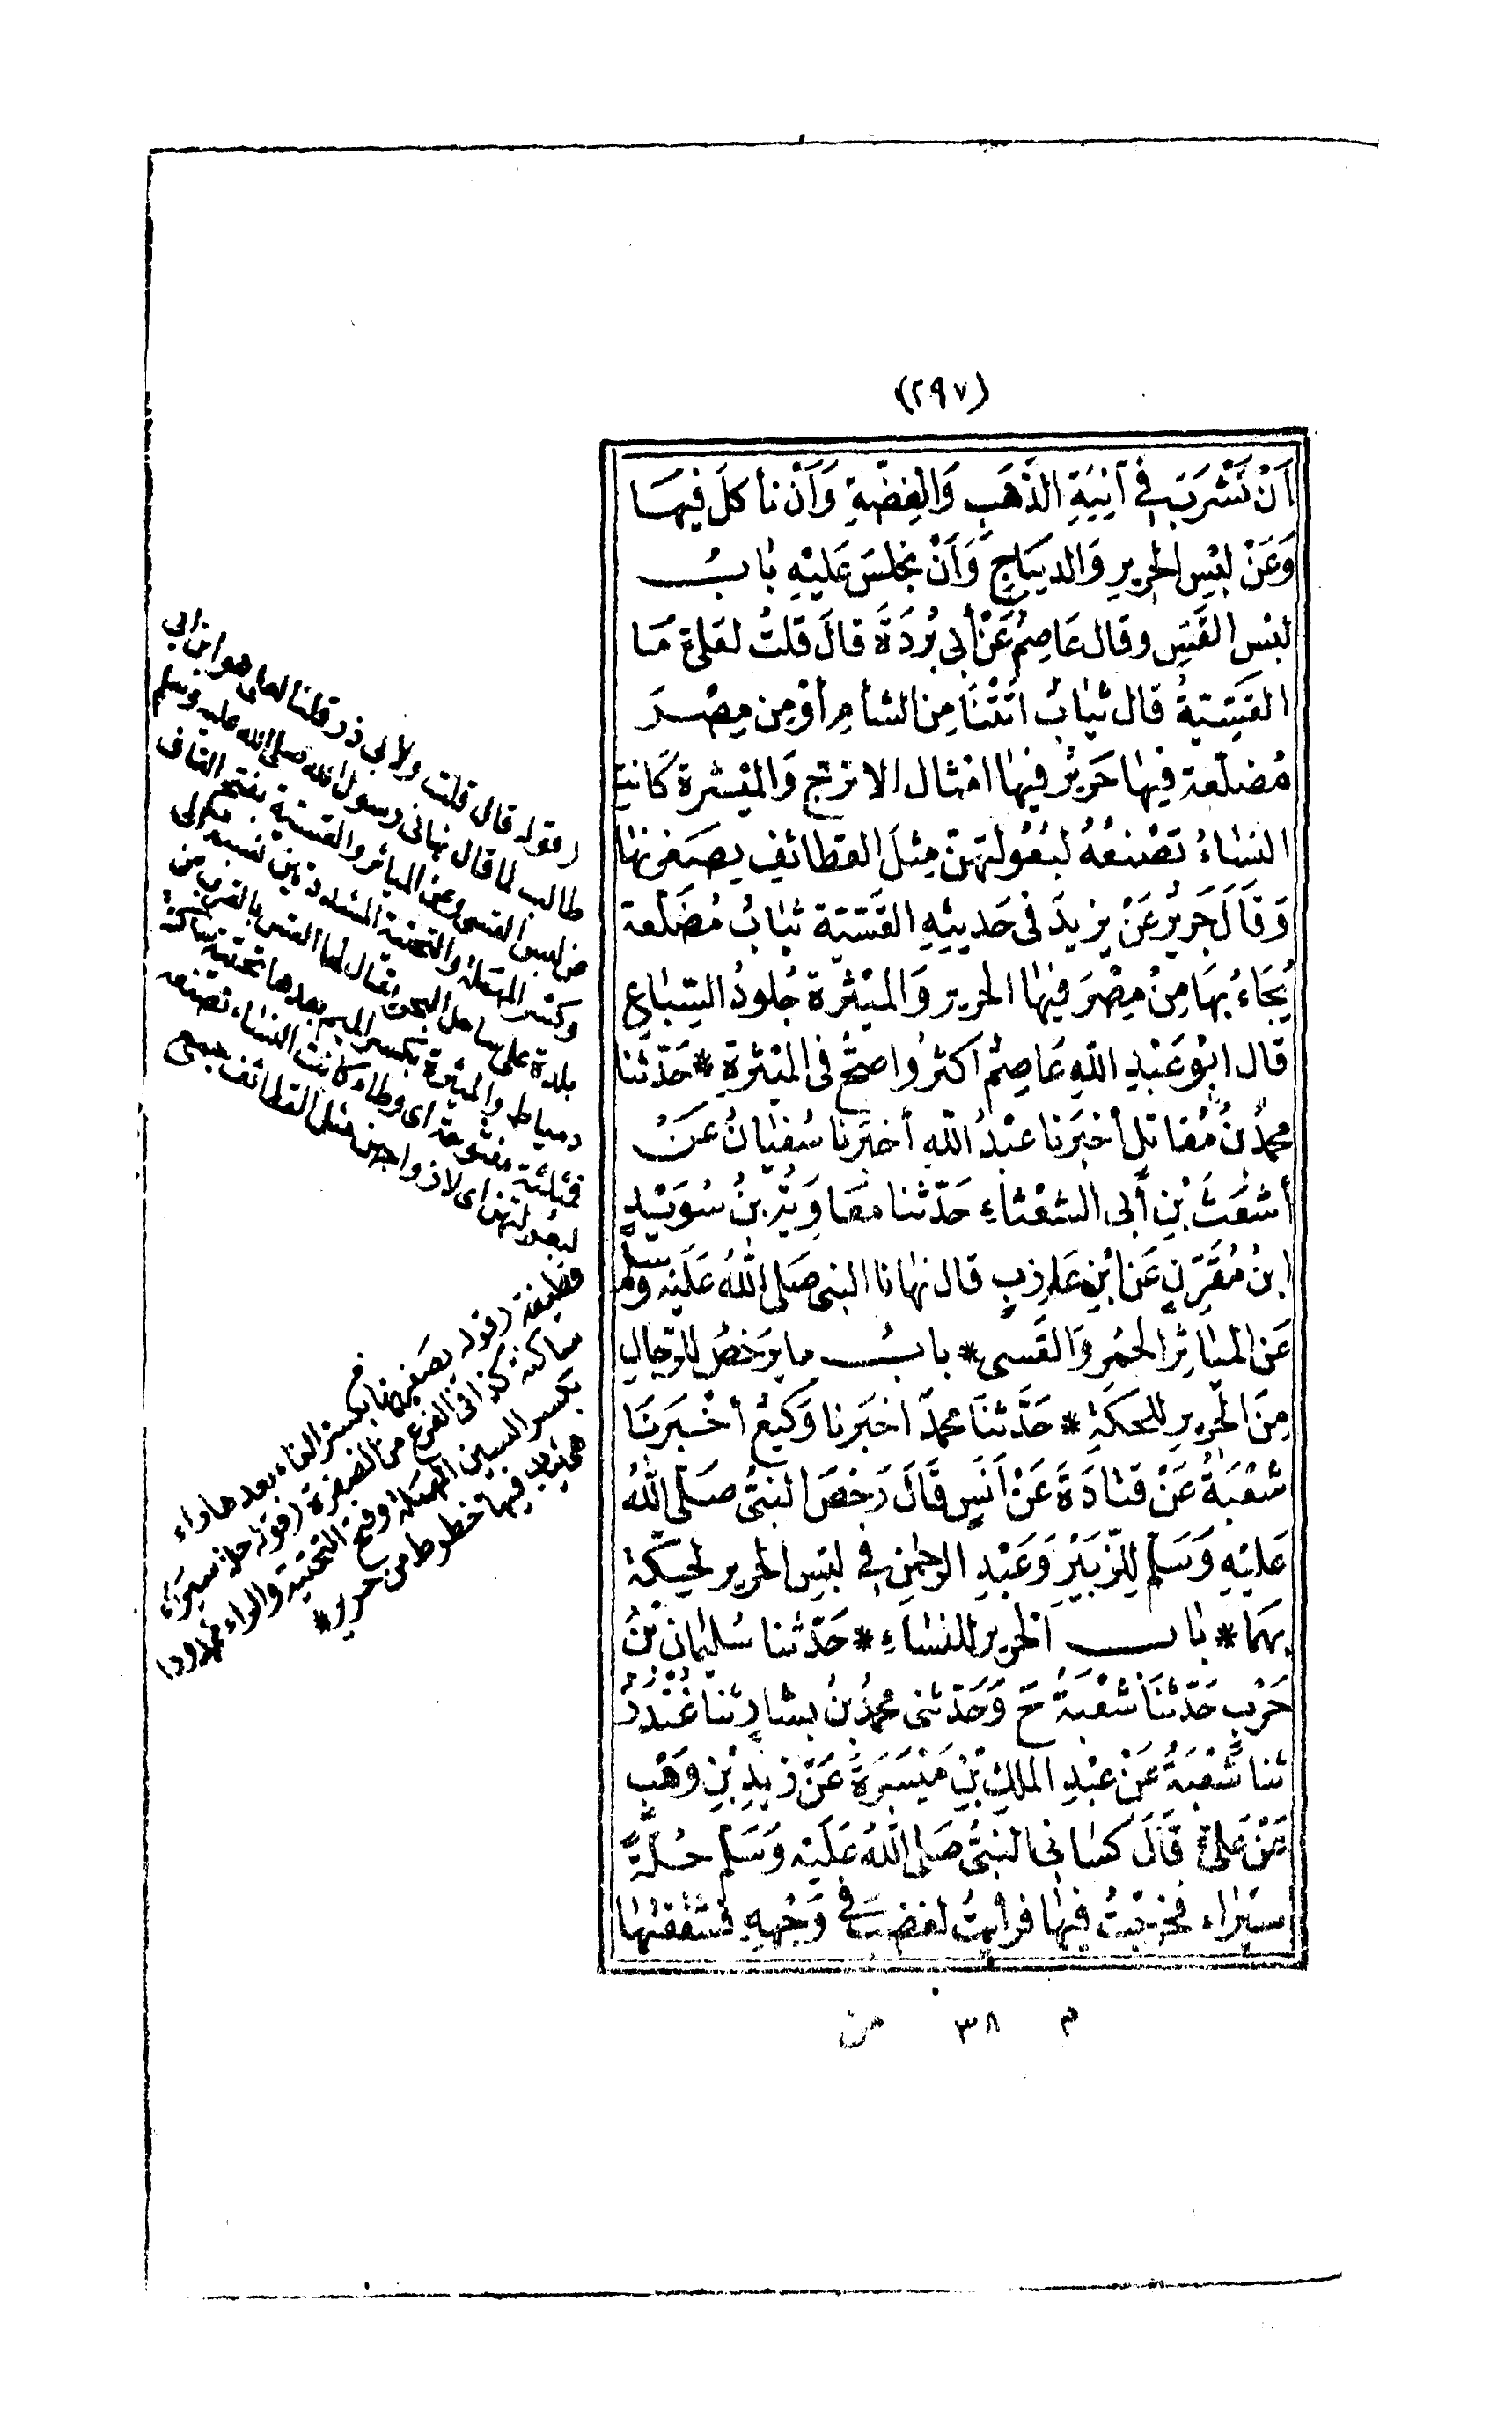 (٢٩٧)
اَنْ نَشْرَبَ فِي آنِيَةِ الذَّهَبِ وَالفِضَّةِ وَاَنْ نأكلَ فيهَا
وَعَنْ لبْسِ الحريرِ وَالديبَاجِ وَاَنْ نجلسَ عَليْهِ بَابُ
لبْسِ القَسِّيِّ وقال عَاصِمٌ عَنْ أبى بُرْدَةَ قالَ قلتُ لعَلىٍّ مَا
القَسِّيَّةُ قال ثيابٌ اتَتْنَا مِنَ الشأمِ أوْ مِن مِصْرَ
مُضلّعة فيهَا حَرِيرٌ فيهَا امْثال الاترجِّ وَالميْثرة كانت
النسَاءُ تَصْنعُهُ لبُعُولتهنّ مِثلَ القطائفِ يصَفرنهَا
وَقَالَ جَرِيرٌ عَنْ يزيدَ فى حَديثِهِ القَسِّيّة ثيَابٌ مُضَلّعة
يُجَاءُ بهَا مِنْ مِصْرَ فيهَا الحَرير وَالميْثرة جُلودُ السِّبَاعِ
قال ابُو عَبْدِ اللهِ عَاصِمٌ اكثرُ واصحُّ فى الميْثرةِ * حَدّثنا
محمدُ بنُ مُقاتلٍ أخبَرنا عبْدُ اللهِ أخبَرنا سُفيَانُ عَنْ
أشعَثَ بْنِ أبى الشعْثاءِ حَدّثنا مُعَاوِيَةُ بنُ سُوَيْدِ
ابنُ مُقَرِّنٍ عَنْ ابْنِ عَازِبٍ قال نهَانا النبى صَلى اللهُ عَلَيْهِ وسلم
عَن المَيَاثِرِ الحُمْرِ وَالقَسى * بَابُ ما يرَخصُ للرِّجالِ
مِنَ الحَريرِ للحكَّةِ * حَدَّثنَا محمدٌ اخبَرنا وَكيعٌ أخْبَرنَا
شُعْبَةُ عَنْ قتَادَةَ عَنْ اَنَسٍ قَالَ رَخصَ النبىُّ صَلّى اللهُ
عَليْهِ وَسَلم لِلزّبَيْرِ وَعَبْدِ الرحمٰنِ فِي لبْسِ الحَرير لحكّة
بِهمَا * بَاب الحَرير للنسَاءِ * حَدّثنا سُليمان بْنُ
حَرْبٍ حَدّثنَا شعْبَةُ ح وَحَدّثنى محمدُ بنُ بشارٍ ثنا غُنْدَرٌ
ثنا شُعْبَةُ عَنْ عبْدِ الملكِ بْنِ مَيْسَرَةَ عَنْ زيدِ بْنِ وَهْبٍ
عَنْ عَلىٍّ قَالَ كسَانى النبىُّ صَلى اللهُ عَلَيْهِ وَسَلم حُلةً
سِيَرَاء فخرَجْتُ فيهَا فرأيْتُ الغضَبَ فِي وَجْهِهِ فشققتهَا
(قوله قال قلت ولأبى ذر قلنا لعلى هو ابن أبى
طالب لما قال نهانى رسول الله صلى الله عليه وسلم
عن لبس القسى وعن المياثر والقسية بفتح القاف
وكسر المهملة والتحتية المشددتين نسبة الى
بلدة على ساحل البحر يقال لها القس بالقرب من
دمياط والميثرة بكسر الميم بعدها تحتية ساكنة
فمثلثة مفتوحة اى وطاء وكانت النساء تصنعه
لبعولتهن اى لازواجهن مثل القطائف جمع
قطيفة (قوله يصفرنها بكسر الفاء بعدها راء
ساكنة كذا فى الفرع من الصفرة (قوله حلة سيراء
بكسر السين المهملة وفتح التحتية والراء ممدودا
هى برود فيها خطوط من حرير *
م ٣٨ من